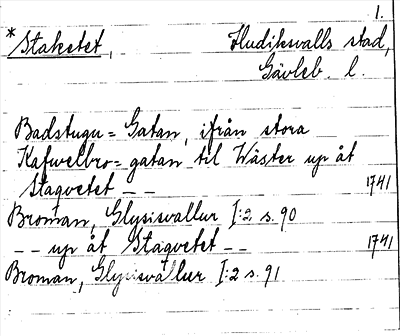 1.
*Staketet, Hudiksvalls stad,
Gävleb. l.
Badstugu= Gatan, ifrån stora
Kafwelbro= gatan til Wäster up åt
Staqvetet – – 1741
Broman, Glysisvallur I:2 s. 90
– – up åt Staqvetet – – 1741
Broman, Glysisvallur I:2 s. 91